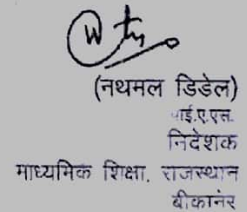 (नथमल डिडेल)
आई.ए.एस.
निदेशक
माध्यमिक शिक्षा, राजस्थान
बीकानेर